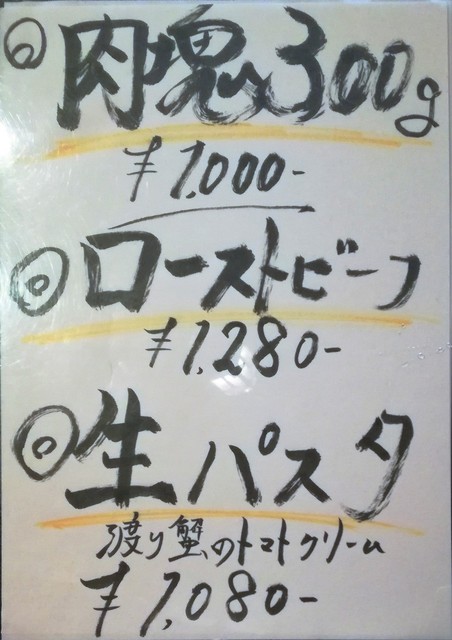 ◎肉塊300g
¥1,000-
◎ローストビーフ
¥1,280-
◎生パスタ
渡り蟹のトマトクリーム
¥1,080-